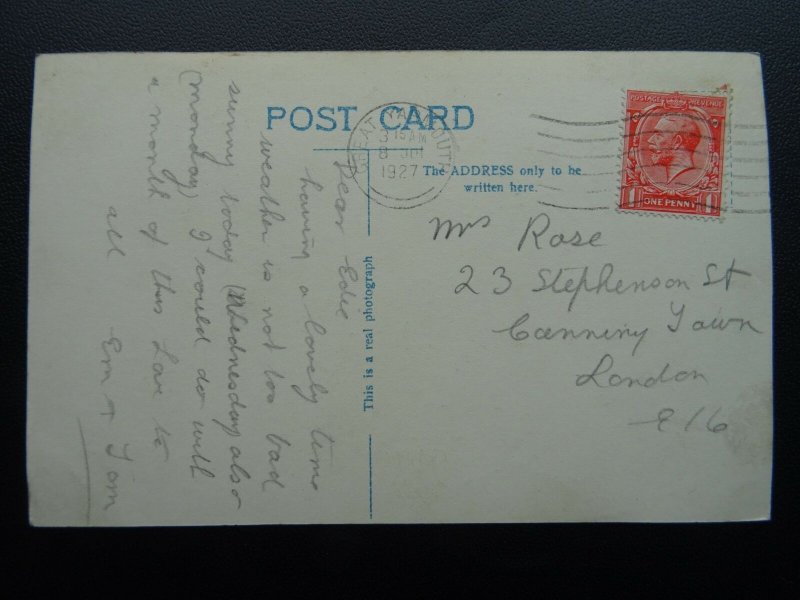 POST CARD
The ADDRESS only to be
written here.
This is a real photograph
GREAT YARMOUTH
3 15 AM
8
1927
POSTAGE REVENUE
1 ONE PENNY 1
Mrs Rose
23 Stephenson St
Canning Town
London
E16
Dear Edie
having a lovely time
weather is not too bad
sunny today (Wednesday) also
(Monday) I could do with
a month of this Love to
all Em & Tom